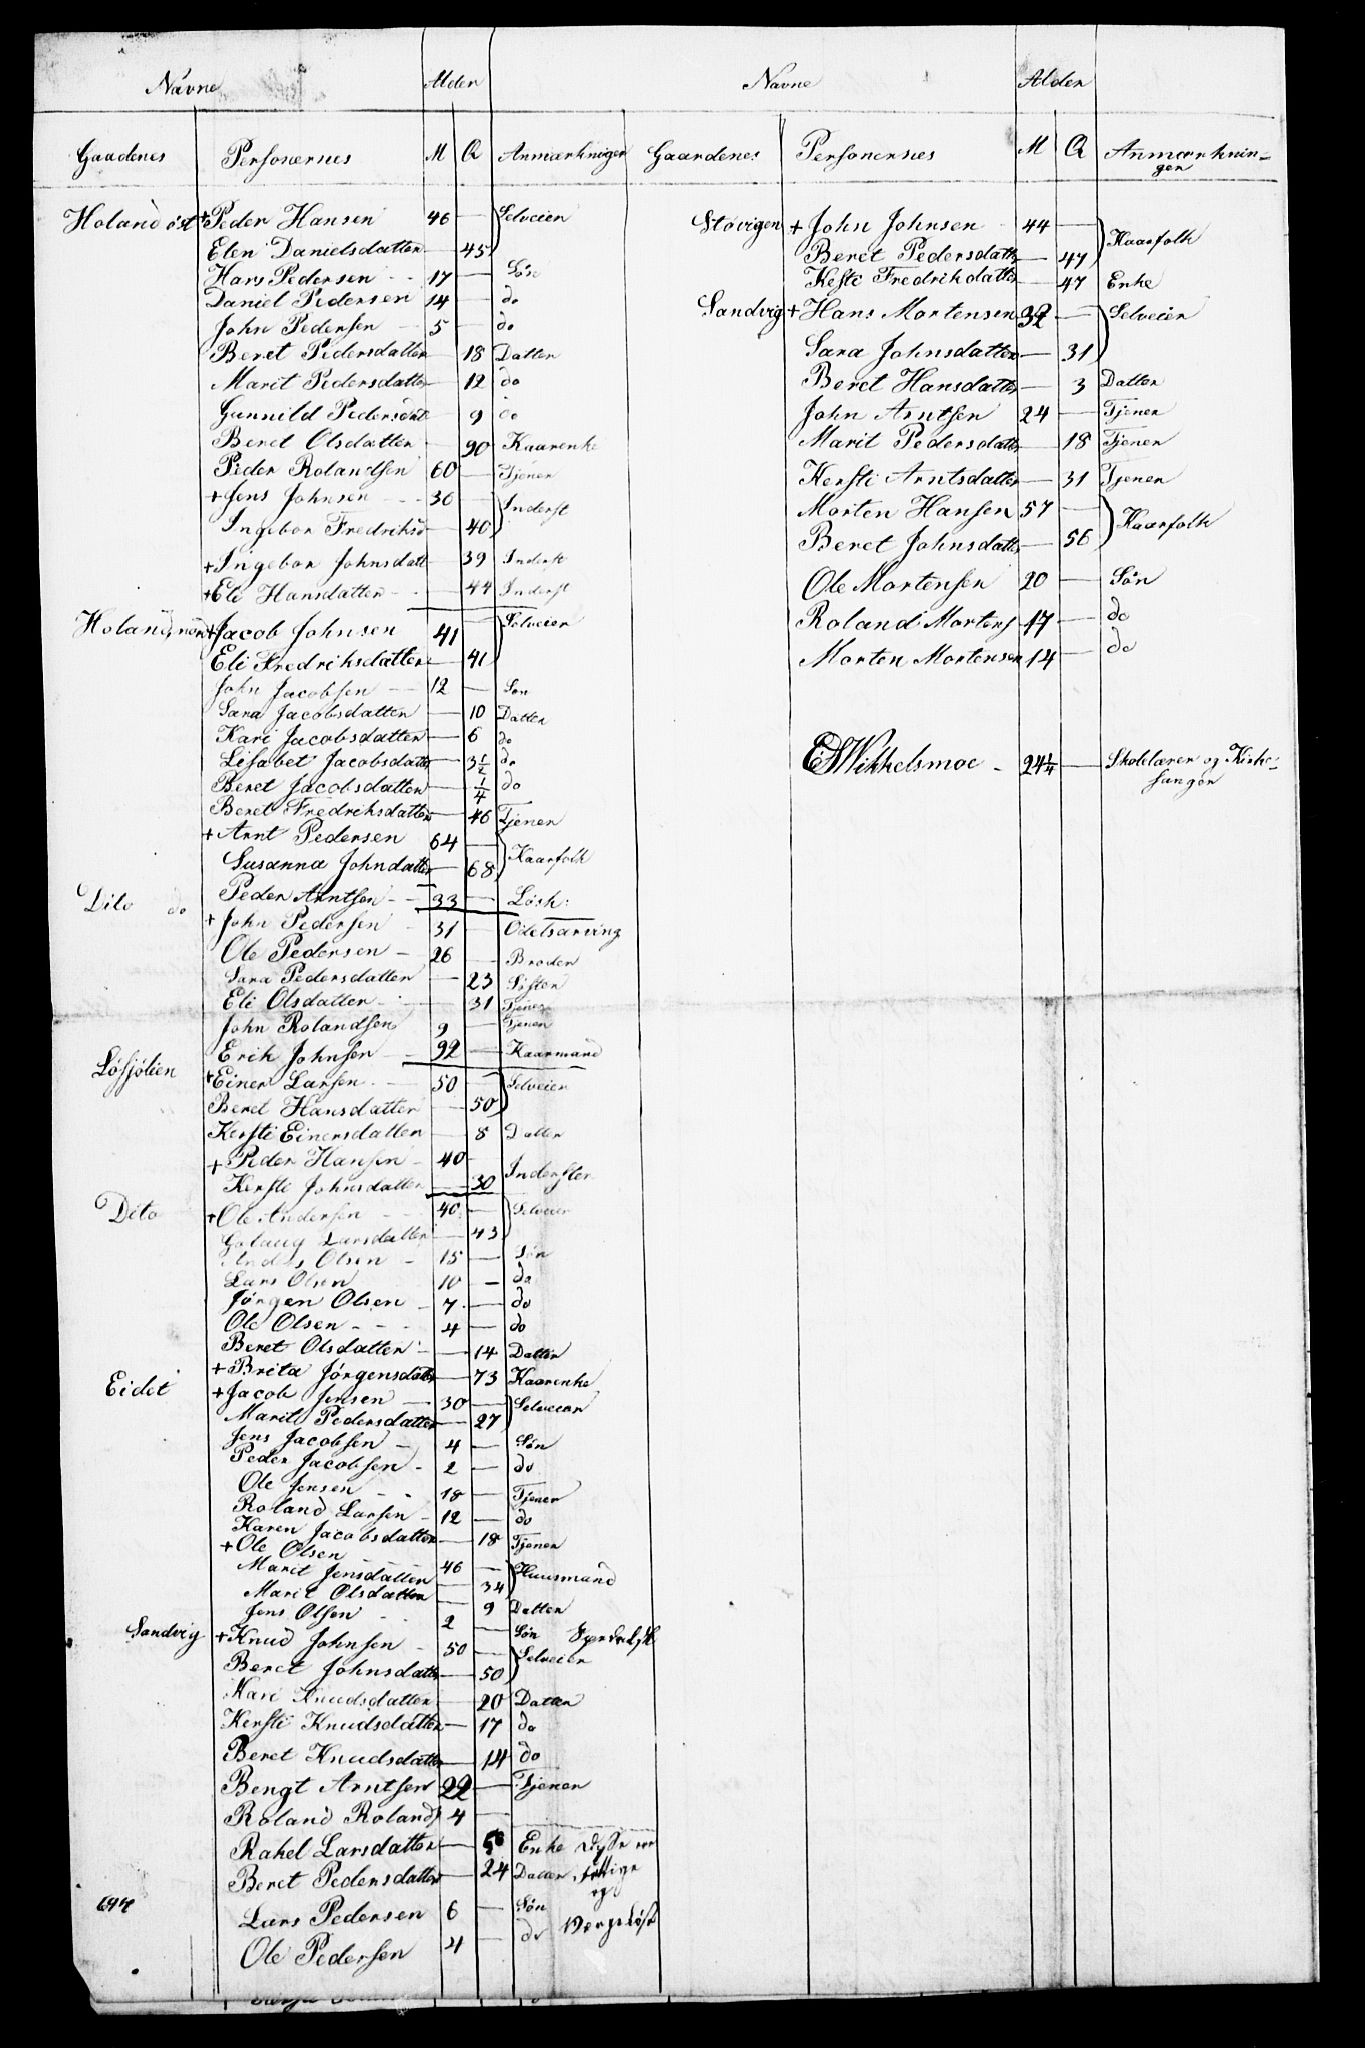 Navne Alder
Gaadenes Personernes M Q Anmærkninger
Holand øst + Peder Hansen 46 — Selveier
Elen Danielsdatter — 45
Hans Pedersen 17 — Søn
Daniel Pedersen 14 — do
John Pedersen 5 — do
Beret Pedersdatter — 18 Datter
Marit Pedersdatter — 12 do
Gunnild Pedersdat — 9 do
Beret Olsdatter — 90 Kaarenke
Peder Rolandsen 60 — Tjener
+ Jens Johnsen 36 — Inderst
Ingebor Fredriksd 40
+ Ingebor Johnsdatt — 39 Inderst
+ Eli Hansdatter — 44 Inderst
Holand, nord + Jacob Johnsen 41 — Selveier
Eli Fredriksdatter — 41
John Jacobsen 12 — Søn
Sara Jacobsdatter — 10 Datter
Kari Jacobsdatter — 6 do
Lisabet Jacobsdatter — 3 1/2 do
Beret Jacobsdatter — 1/4 do
Beret Fredriksdatter — 46 Tjener
+ Arnt Pedersen 64 — Kaarfolk
Susanna Johndatter — 68
Peder Arntsen 33 — Løsk:
Dito do + John Pedersen 31 — Odelsarving
Ole Pedersen 26 — Broder
Sara Pedersdatter — 23 Søster
Eli Olsdatter — 31 Tjener
John Rolandsen 9 — Tjener
Erik Johnsen 92 — Kaarmand
Løssjølien + Einer Larsen 50 — Selveier
Beret Hansdatter — 50
Kersti Einersdatter — 8 Datter
+ Peder Hansen 40 Inderster
Kersti Johnsdatter — 30
Dito + Ole Andersen 40 — Selveier
Golaug Larsdatter — 43
Anders Olsen 15 — Søn
Lars Olsen 10 — do
Jørgen Olsen 7 — do
Ole Olsen 4 — do
Beret Olsdatter — 14 Datter
+ Brita Jørgensdatter — 73 Kaarenke
Eidet + Jacob Jensen 30 — Selveier
Marit Pedersdatter — 27
Jens Jacobsen 4 — Søn
Peder Jacobsen 2 — do
Ole Jensen 18 — Tjener
Roland Larsen 12 — do
Karen Jacobsdatter — 18 Tjener
+ Ole Olsen 46 — Huusmand
Marit Jensdatter — 34
Marit Olsdatter — 9 Datter
Jens Olsen 2 — Søn
Sandvig + Knud Johnsen 50 — Selveier
Beret Johnsdatter — 50
Mari Knudsdatter — 20 Datter
Kersti Knudsdatter — 17 do
Beret Knudsdatter — 14 do
Bengt Arntsen 22 — Tjener
Roland Rolands 4 —
Rahel Larsdatter — Enke Disse ere
Beret Pedersdatter — 24 Datter fattige
og
Lars Pedersen 6 — Søn
Ole Pedersen 4 — do Værgeløse
Navne Alder
Gaardenes Personernes M Q Anmærkninger
Støvigen + John Johnsen 44 — Kaarfolk
Beret Pedersdatter — 47
Kesti Fredrikdatter — 47 Enke
Sandvig + Hans Mortensen 32 — Selveier
Sara Johnsdatter — 31
Beret Hansdatter — 3 Datter
John Arntsen 24 — Tjener
Marit Pedersdatter — 18 Tjener
Kersti Arntsdatter — 31 Tjener
Morten Hansen 57 — Kaarfolk
Beret Johnsdatter — 56
Ole Mortensen 20 — Søn
Roland Mortens 17 — do
Morten Mortensen 14 — do
Wikkelsmoe 24 1/4 — Skolelærer og Kirke-
sanger